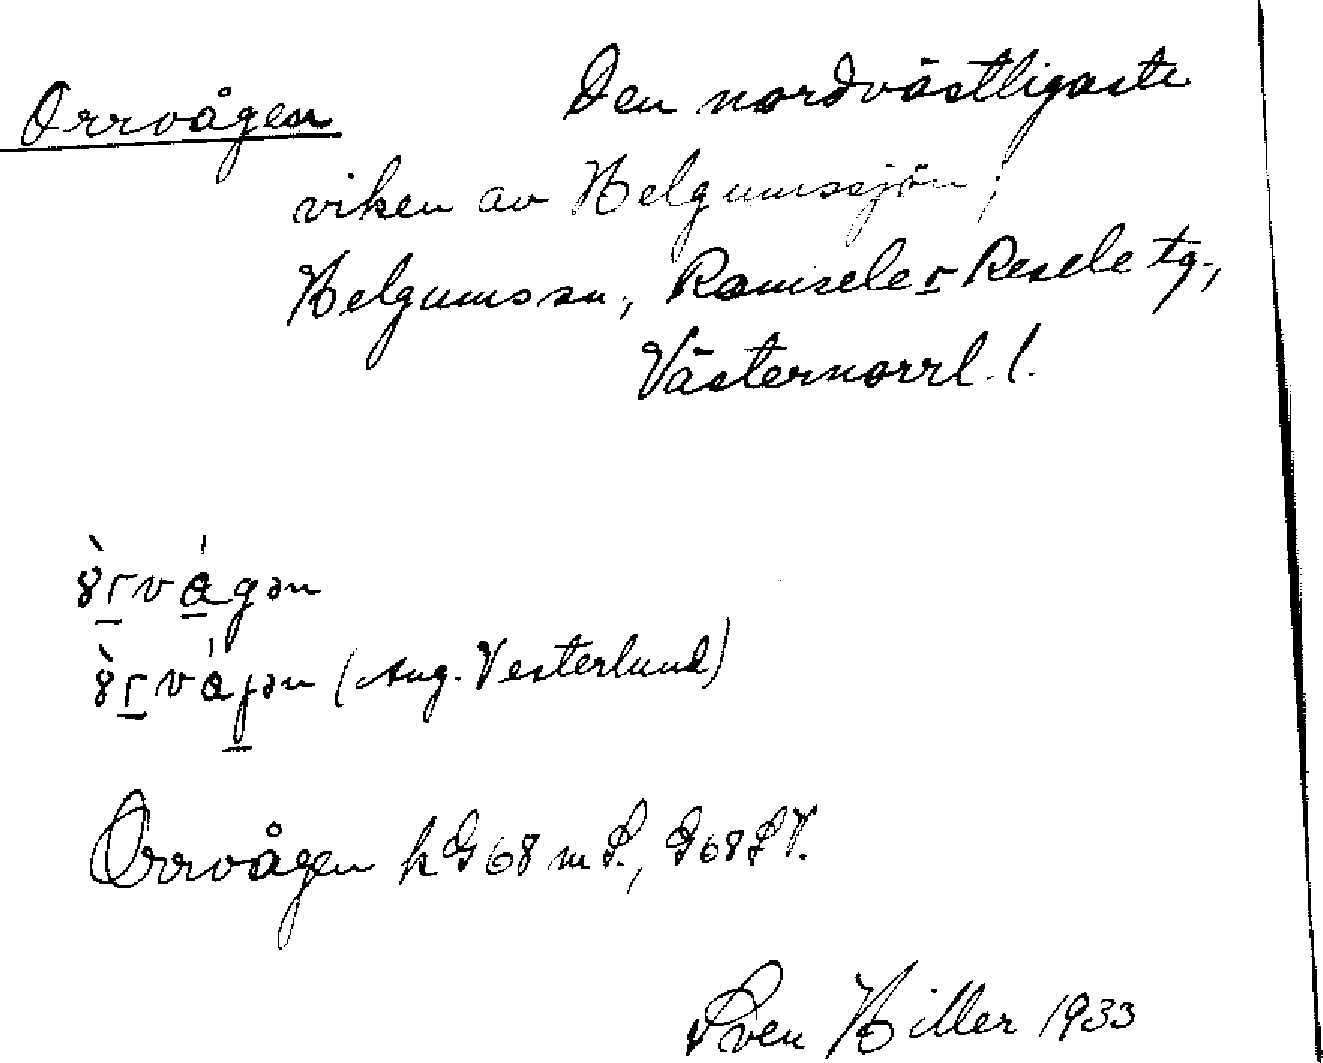 Orrvågen Den nordvästligaste
viken av Helgumssjön;
Helgums sn., Ramsele o Resele tg.,
Västernorrl. l.
(Aug. Vesterlund)
Orrvågen k G 68 m S., G 68 S V.
Sven Hiller 1933